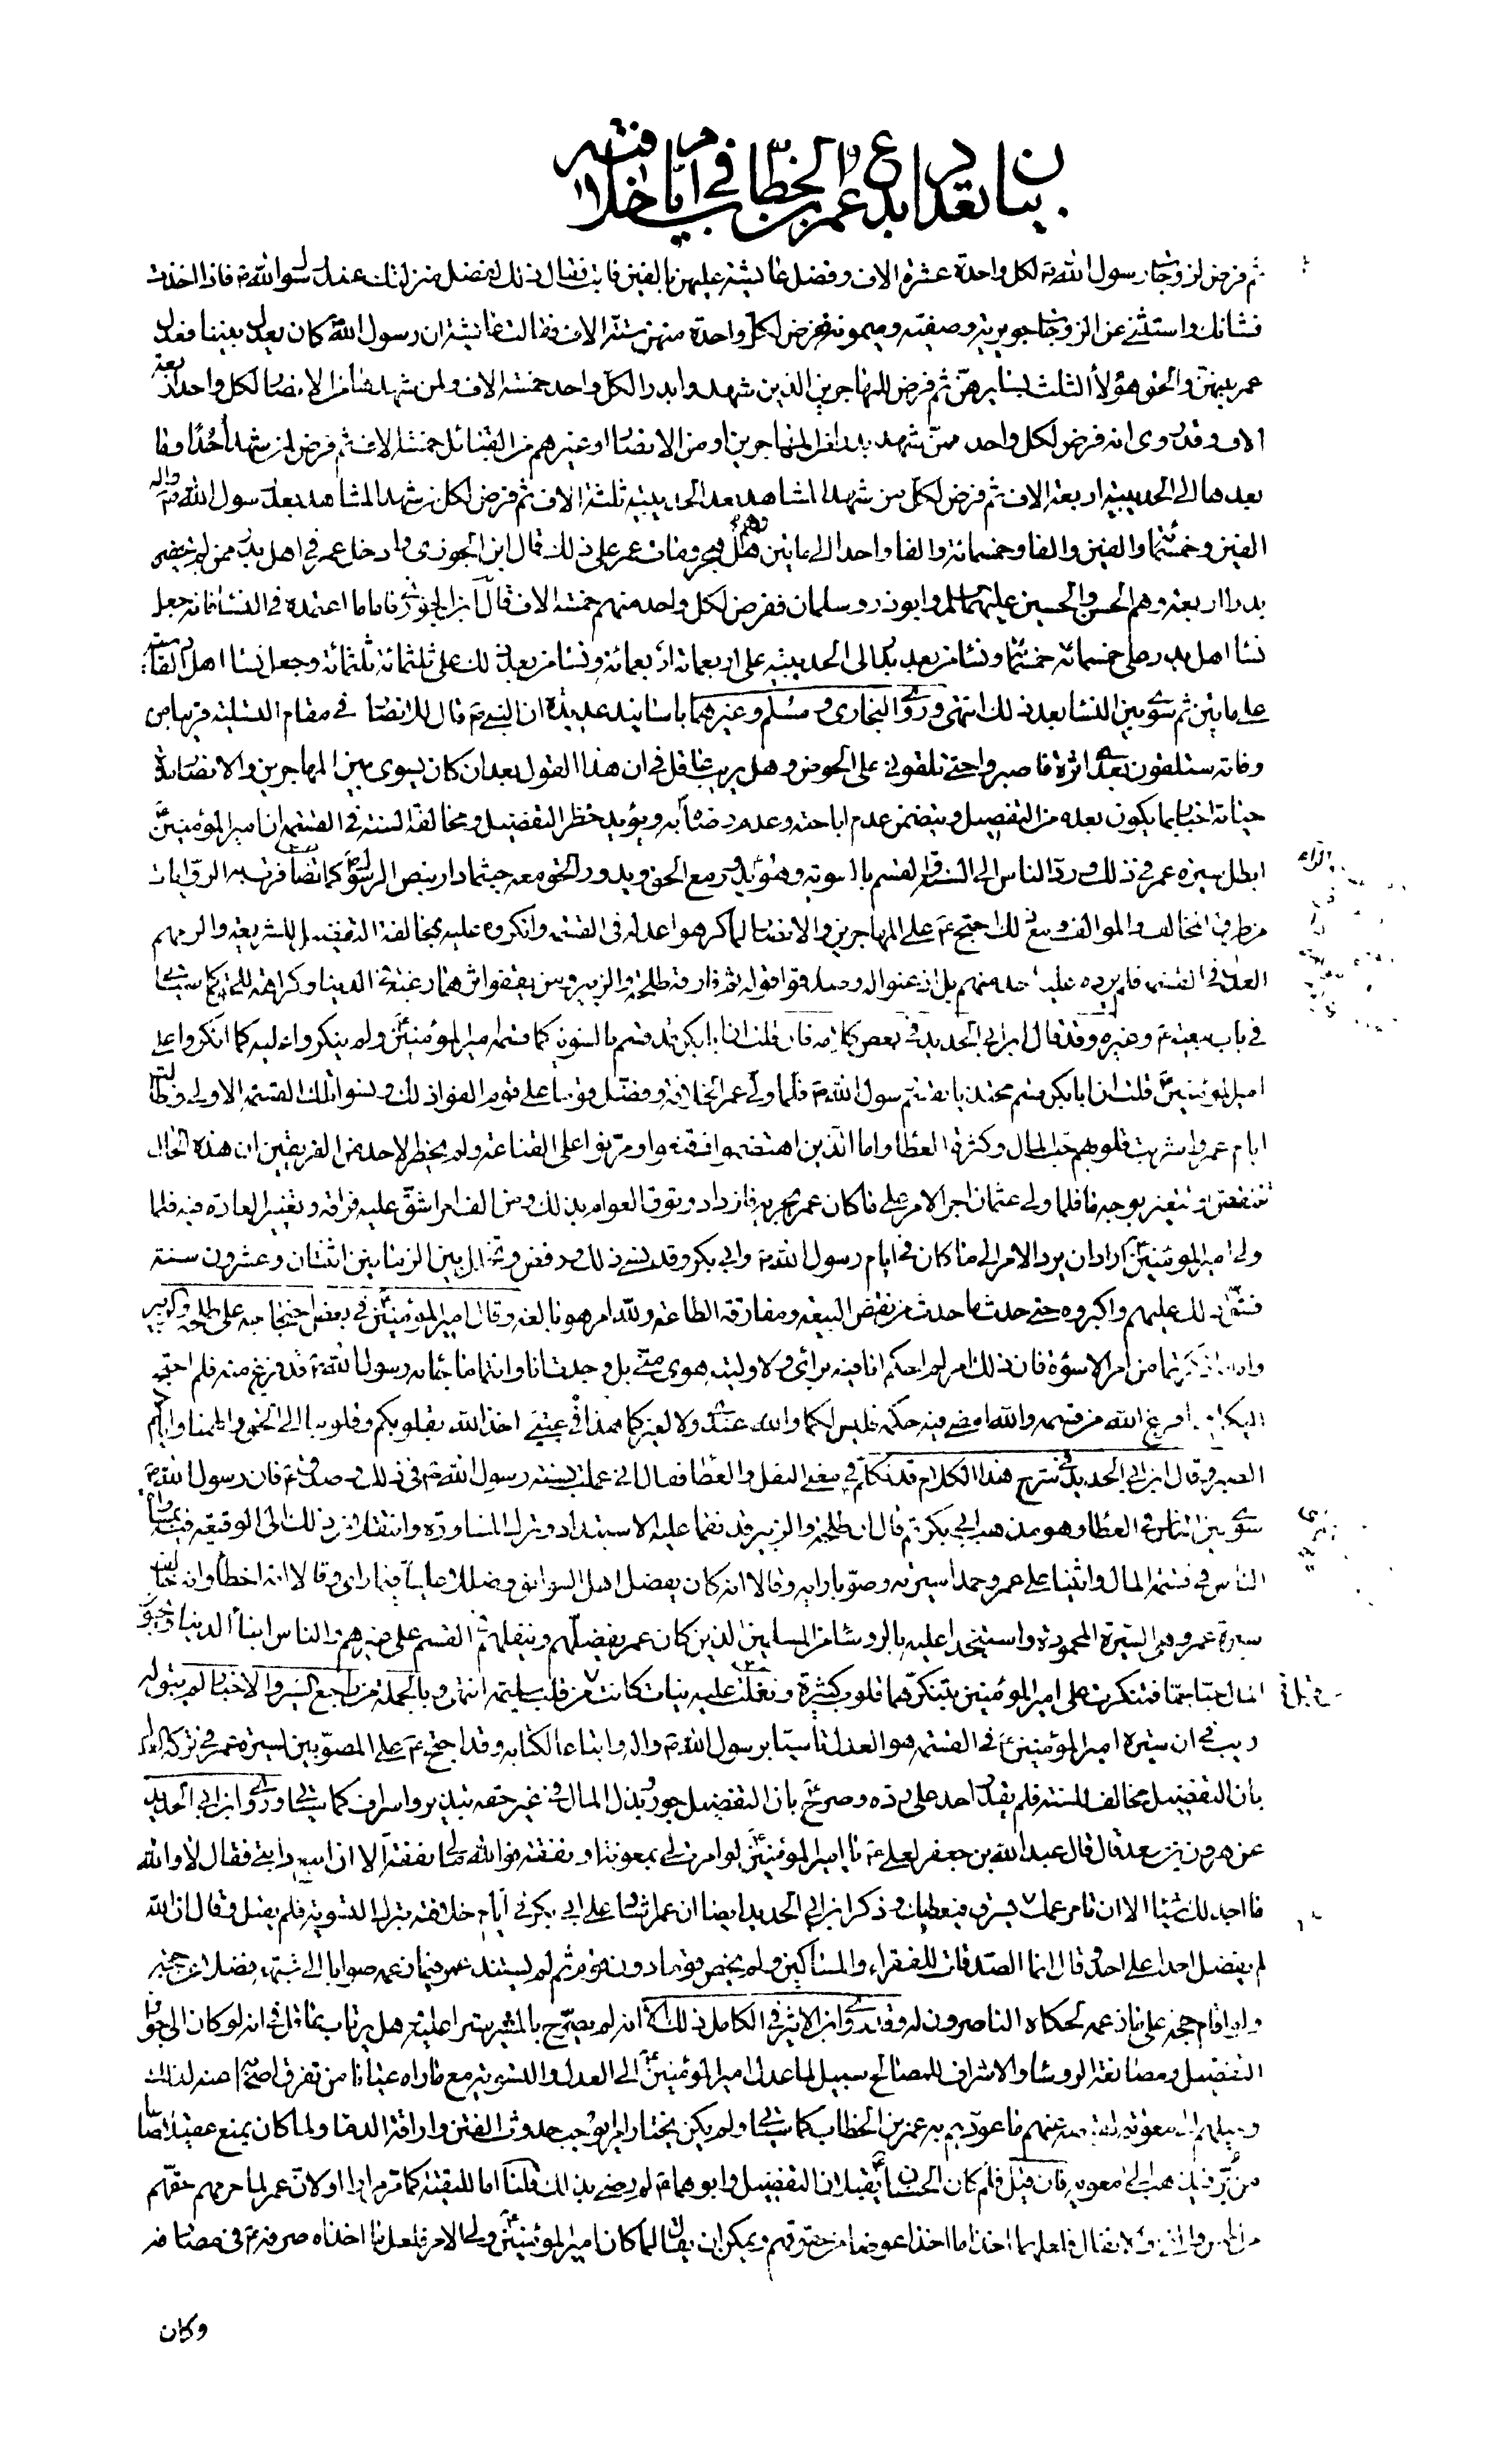 بيان تعداد بدع عمر بن الخطاب في ايام خلافته
ثم فرض لزوجات رسول الله ص لكل واحدة عشرة الاف وفضل عايشة عليهن بالفين فابت فقال ذلك لفضل منزلتك عند رسول الله ص فاذا اخذت
فشانك واستثنى عن الزوجات جويرية وصفية وميمونة ففرض لكل واحدة منهن ستة الاف فقالت عايشة ان رسول الله ص كان يعدل بيننا فعدل
عمر بينهن والحق هؤلاء الثلث بسايرهن ثم فرض للمهاجرين الذين شهدوا بدرا لكل واحد خمسة الاف ولمن شهدها من الانصار لكل واحد اربعة
الاف وقد روى انه فرض لكل واحد ممن شهد بدرا من المهاجرين او من الانصار او غيرهم من القبائل خمسة الاف ثم فرض لمن شهد أحدا وما
بعدها الى الحديبية اربعة الاف ثم فرض لكل من شهد المشاهد بعد الحديبية ثلثة الاف ثم فرض لكل من شهد المشاهد بعد رسول الله ص واله
الفين وخمسمائة والفين والفا وخمسمائة والفا واحدا الى مايتين وهم اهل هجر ومات عمر على ذلك قال ابن الجوزى وادخل عمر في اهل بدر ممن لم يحضر
بدرا اربعة وهم الحسن والحسين عليهما السلم وابوذر وسلمان ففرض لكل واحد منهم خمسة الاف قال ابن الجوزى فاما ما اعتمده في النساء فانه جعل
نساء اهل بدر على خمسمائة خمسمائة ونساء من بعد بدر الى الحديبية على اربعمائة اربعمائة ونساء من بعد ذلك على ثلثمائة ثلثمائة وجعل نساء اهل القادسية
على مايتين ثم سوى بين النساء بعد ذلك انتهى وروى البخارى ومسلم وغيرهما باسانيد عديدة ان النبي ص قال للانصار في مقام التسلية قريبا من
وفاته ستلقون بعدى اثرة فاصبروا حتى تلقونى على الحوض وهل يريب عاقل في ان هذا القول بعد ان كان يسوى بين المهاجرين والانصار مدة
حياته اخبار بما يكون بعده من التفضيل ويتضمن عدم اباحته وعدم رضاه به ويؤيد حظر التفضيل ومخالفة السنة في القسمة ان امير المؤمنين ع
ابطل سيرة عمر في ذلك ورد الناس الى السنة والقسم بالسوية وهو ع يدور مع الحق ويدور الحق معه حيثما دار بنص الرسول ص كما تضافرت به الروايات
من طرق المخالف والموالف ومع ذلك احتج ع على المهاجرين والانصار لما كرهوا عدله في القسمة وانكروه عليه بمخالفة التفضيل للشريعة والزمهم
العدل في القسمة فلم يرده عليه احد منهم بل اذعنوا له وصدقوا قوله ثم فارقه طلحة والزبير ومن يقفو اثرهما رغبة في الدنيا وكراهة للحق كما سياتى
في باب بيعته ع وغيره وقد قال ابن ابي الحديد في بعض كلامه فان قلت ان ابا بكر قد قسم بالسوية كما قسمه امير المؤمنين ع ولم ينكروا عليه كما انكروا على
امير المؤمنين ع قلت ان ابا بكر قسم محتذيا بقسم رسول الله ص فلما ولي عمر الخلافة وفضل قوما على قوم الفوا ذلك ونسوا تلك القسمة الاولى وطالت
ايام عمر واشربت قلوبهم حب المال وكثرة العطاء واما الذين اهتضموا فقنعوا ومرنوا على القناعة ولم يخطر لاحد من الفريقين ان هذه الحال
تنتقض او تتغير بوجه ما فلما ولي عثمان اجرى الامر على ما كان عمر يجريه فازداد وثوق العوام بذلك ومن الف امرا شق عليه فراقه وتغيير العادة فيه فلما
ولي امير المؤمنين ع اراد ان يرد الامر الى ما كان في ايام رسول الله ص وابي بكر وقد نسي ذلك ورفض وتخلل بين الزمانين اثنتان وعشرون سنة
فشق ذلك عليهم واكبروه حتى حدث ما حدث من نقض البيعة ومفارقة الطاعة ولله امر هو بالغه وقال امير المؤمنين ع في بعض احتجاجه على طلحة والزبير
واما ما ذكرتما من امر الاسوة فان ذلك امر لم احكم انا فيه برائي ولا وليته هوى منى بل وجدت انا وانتما ما جاء به رسول الله ص قد فرغ منه فلم احتج
اليكما فيما فرغ الله من قسمه والله امضى فيه حكمه فليس لكما والله عندى ولا لغيركما هذا في عتبى اخذ الله بقلوبكم وقلوبنا الى الحق والهمنا واياكم
الصبر وقال ابن ابي الحديد في شرح هذا الكلام قد تكلم ع في معنى النفل والعطاء فقال انى عملت بسنة رسول الله ص في ذلك وصدق ع فان رسول الله ص
سوى بين الناس في العطاء وهو مذهب ابي بكر ثم قال ان طلحة والزبير قد نقما عليه الاستبداد وترك المشاورة وانتقلا من ذلك الى الوقيعة فيه بمساواة
الناس في قسمة المال واثنيا على عمر وحمدا سيرته وصوبا رايه وقالا انه كان يفضل اهل السوابق وضللا عليا ع فيما راى وقالا انه اخطأ وانه خالف
سيرة عمر وهي السيرة المحمودة واستنجدا عليه بالرؤساء من المسلمين الذين كان عمر يفضلهم وينفلهم في القسم على غيرهم والناس ابناء الدنيا ويحبون
المال حبا جما فتنكرت على امير المؤمنين ع بتنكرهما قلوب كثيرة ونغلت عليه نيات كانت من قبل سليمة انتهى وبالجملة من راجع السير والاخبار لم يبق له
ريب في ان سيرة امير المؤمنين ع في القسمة هو العدل تاسيا برسول الله ص واله واتباعا لكتابه وقد احتج ع على المصوبين لسيرة عمر في تركه العدل
بان التفضيل مخالف للسنة فلم يقدر احد على رده وصرح ع بان التفضيل جور وبذل المال في غير حقه تبذير واسراف كما سياتى وروى ابن ابي الحديد
عن هرون بن سعد قال قال عبدالله بن جعفر لعلي ع يا امير المؤمنين ع لو امرت لي بمعونة او نفقة فوالله ما لي نفقة الا ان ابيع دابتى فقال لا والله
ما اجد لك شيئا الا ان تامر عمك يسرق فيعطيك وذكر ابن ابي الحديد ايضا ان عمر اشار على ابي بكر في ايام خلافته بترك التسوية فلم يقبل وقال ان الله
لم يفضل احدا على احد وقال انما الصدقات للفقراء والمساكين ولم يخص قوما دون قوم ثم لم يستند عمر فيما زعمه صوابا الى شبهة فضلا عن حجة
ولو اقام حجة على ما زعمه لحكاه الناصرون له وقد روى ابن الاثير في الكامل ذلك الا انه لم يصرح بالمشير سترا عليه وهل يرتاب عاقل في انه لو كان الى جواز
التفضيل ومصانعة الرؤساء والاشراف للمصالح سبيل لما عدل امير المؤمنين ع الى العدل والتسوية مع ما راه عيانا من تفرق اصحابه عنه لذلك
وميلهم الى معوية بقبضه عنهم ما عودهم به عمر بن الخطاب كما سياتى ولم يكن يختار امرا يوجب حدوث الفتن واراقة الدماء ولما كان يمنع عقيلا صاعا
من بر فيذهب الى معوية فان قيل فلم كان الحسنان ع يقبلان التفضيل وابوهما ع لم رضي بذلك قلنا اما للتقية كما مر مرارا او لان عمر لما حرمهم حقهم
من الخمس والفيء والانفال فلعلهما اخذا ما اخذا عوضا من حقوقهم ويمكن ان يقال لما كان امير المؤمنين ع ولي الامر فلعل ما اخذاه صرفه ع في مصارفه
وكان